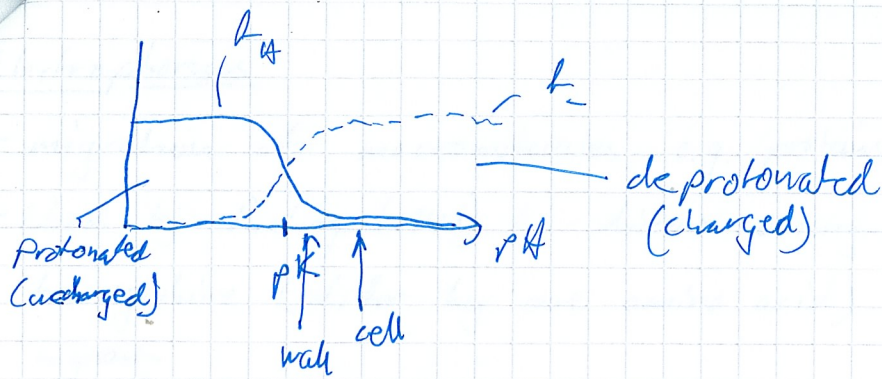 f_H
f_-
deprotonated
(charged)
pH
protonated
(uncharged)
pK
wall
cell